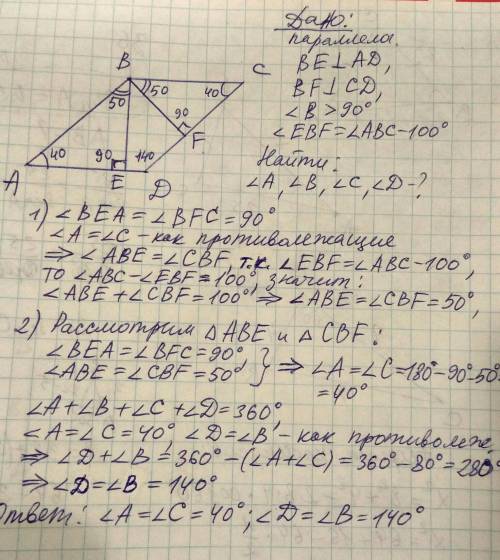 Дано:
параллела.
BE⊥AD,
BF⊥CD,
∠B>90°
∠EBF=∠ABC-100°
Найти:
∠A, ∠B, ∠C, ∠D-?
B
C
50
50
40
90
F
40
90
140
A
E
D
1) ∠BEA=∠BFC=90°
∠A=∠C-как противолежащие
⇒ ∠ABE=∠CBF, т.к. ∠EBF=∠ABC-100°,
то ∠ABC-∠EBF=100°, значит:
∠ABE+∠CBF=100°⇒∠ABE=∠CBF=50°,
2) Рассмотрим △ABE и △CBF:
∠BEA=∠BFC=90°
∠ABE=∠CBF=50° } ⇒ ∠A=∠C=180°-90°-50°
=40°
∠A+∠B+∠C+∠D=360°,
∠A=∠C=40°, ∠D=∠B,-как противолеже
⇒ ∠D+∠B=360°-(∠A+∠C)=360°-80°=280°
⇒∠D=∠B=140°
Ответ: ∠A=∠C=40°; ∠D=∠B=140°